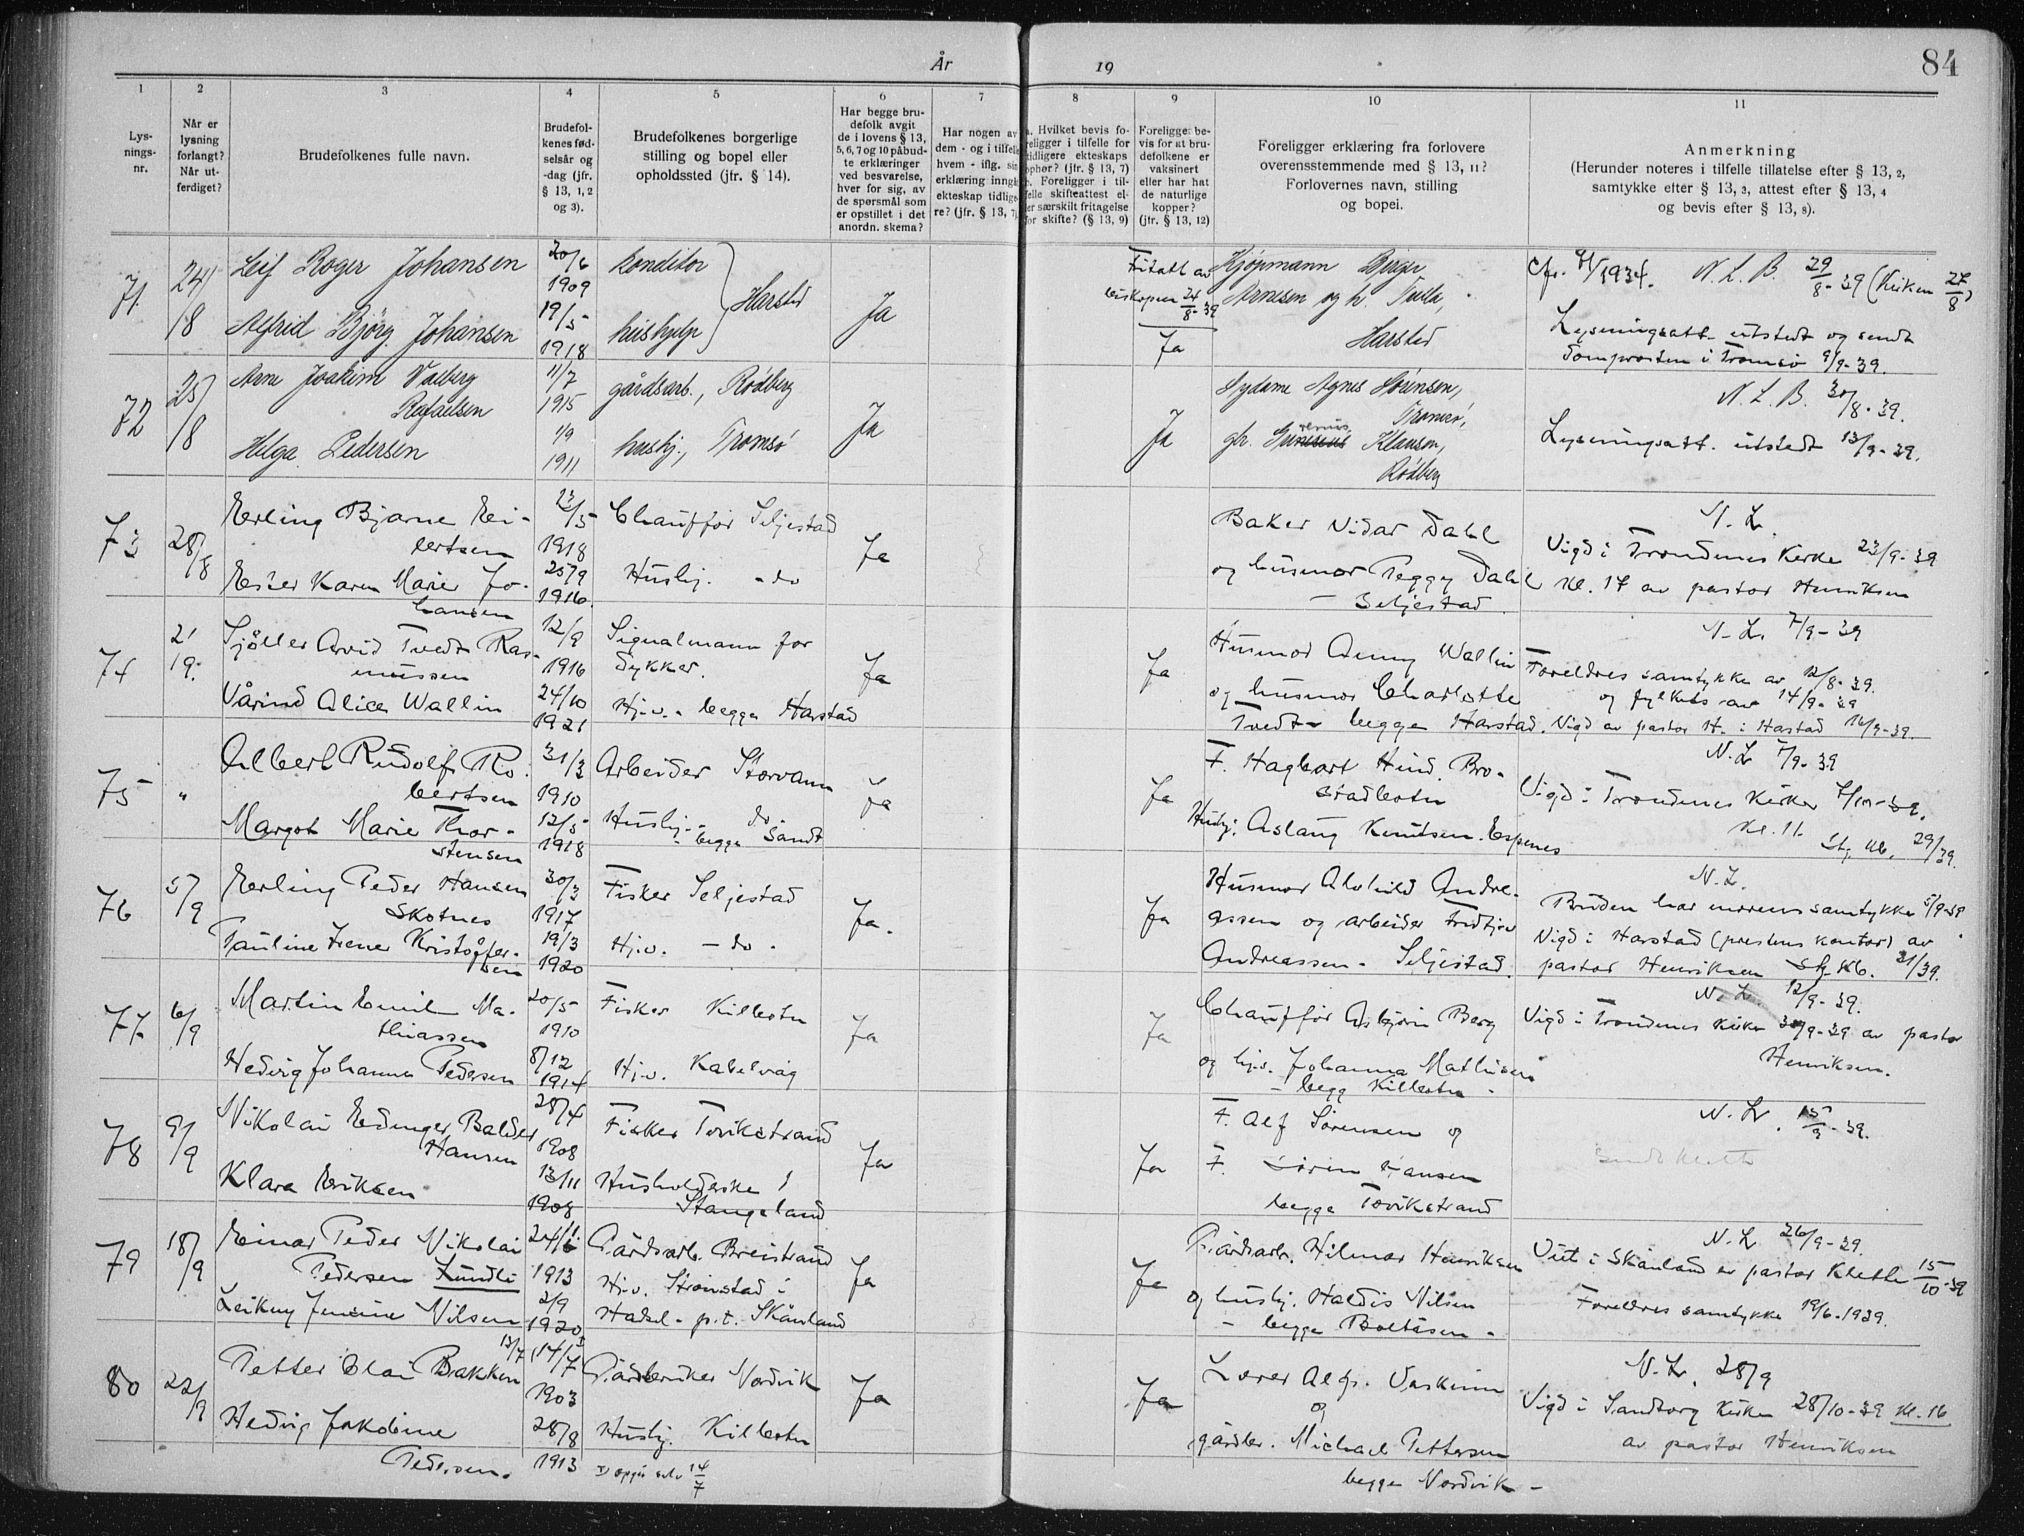 År
19
84
1
2
3
4
5
6
7
8
9
10
11
Lys-
nings-
nr.
Når er
lysning
forlangt?
Når ut-
ferdiget?
Brudefolkenes fulle navn.
Brudefol-
kenes fød-
selsår og
-dag (jfr.
§ 13, 1, 2
og 3).
Brudefolkenes borgerlige
stilling og bopel eller
opholdssted (jfr. § 14).
Har begge bru-
defolk avgit
de i lovens § 13,
5, 6, 7 og 10 påbud-
te erklæringer
ved besvarelse,
hver for sig, av
de spørsmål som
er opstillet i det
anordn. skema?
Har nogen av
dem - og i tilfelle
hvem - iflg. sin
erklæring inngå
ekteskap tidlige
re? (jfr. § 13, 7)
a. Hvilket bevis fo-
religger i tilfelle for
tidligere ekteskaps
ophør? (jfr. § 13, 7)
b. Foreligger i til-
felle skifteattest el-
er særskilt fritagelse
for skifte? (§ 13, 9)
Foreligger be-
vis for at bru-
defolkene er
vaksinert
eller har hat
de naturlige
kopper?
(jfr. § 13, 12)
Foreligger erklæring fra forlovere
overensstemmende med § 13, 11?
Forlovernes navn, stilling
og bopel.
Anmerkning
(Herunder noteres i tilfelle tillatelse efter § 13, 2,
samtykke efter § 13, 3, attest efter § 13, 4
og bevis efter § 13, 8).
71. 24/8
Leif Roger Johansen 20/6 1909 konditor
Alfrid Bjørg Johansen 19/5 1918 hushjelp
Harstad Ja
Fritatt av
biskopen 24/8-39
Ja
Kjøpmann Birger
Arnesen og h.
Harstad
1934. N. L. B. 29/8-39 (Kirken 27/8)
Lysningsatt. utstedt og sendt
Domprosten i Tromsø 9/9-39.
72 25/8
Arne Joakim Valberg
Rafaelsen 11/7 1915 gårdsarb., Rødberg
Helga Pedersen 1/9 1911 hushj., Tromsø
Ja
Ja
Sydame Agnes Sørensen,
Tromsø,
gbr. Klausen,
Rødberg
N. L. B. 30/8-39.
Lysningsatt. utstedt 13/9-39.
73 28/8
Erling Bjarne Ei-
lertsen 23/5 1918 Chauffør Seljestad
Ester Karen Marie Jo-
hansen 25/9 1916. Hushj. - do
Ja
Baker Vidar Dahl
og husmor Peggy Dahl
- Seljestad.
N. L.
Vigd i Trondenes Kirke 23/9-39
Kl. 17 av pastor Henriksen
74 2/9.
Sjöller Arvid Tvedt Ras-
mussen 12/9 1916 Signalmann for
dykker.
Vårind Alice Wallin 24/10 1921 Hj.v. - begge Harstad
Ja
Ja
Husmor Aenny Wallin
og husmor Charlotte
Tvedt - begge Harstad.
N. L. 7/9-39
Foreldres samtykke av 12/8-39.
og fylkets av 14/9-39
Vigd av pastor H. i Harstad 16/9-39.
75 "
Albert Rudolf Ro-
bertsen 31/3 1910 Arbeider Storvann
Margot Marie Thor-
stensen 12/5 1918 Hushj. - do
- begge Sandt
Ja
Ja
F. Hagbart Hind. Bro-
stadbotn
Hushj. Aslaug Knutsen. Espenes
N. L. 7/9-39
Vigd i Trondenes Kirke
Kl. 11.
29/39.
76 5/9
Erling Peder Hansen
Skotnes 30/3 1917 Fisker Seljestad
Pauline Irene Kristoffer-
sen 19/3 1920 Hj.v. - do -
Ja.
Ja
Husmor Alvhild Andre-
assen og arbeider Fridtjov
Andreassen - Seljestad.
N. L.
Bruden har morens samtykke 5/9-39.
Vigd i Harstad (prestens kontor) av
pastor Henriksen Stg. Kb. 21/39.
77. 6/9
Martin Emil Ma-
thiassen 20/5 1910 Fisker Kilbotn
Hedvig Johanne Pedersen 8/12 1914 Hj.v. Kabelvåg
Ja
Ja
Chauffør Asbjørn Berg
og hj.v. Johanna Mathisen
- begge Kilbotn -
N. L. 12/9-39.
Vigd i Trondenes Kirke 30/9-39 av pastor
Henriksen.
78 9/9
Nikolai Edinger Balder
Hansen 28/4 1908 Fisker Tovikstrand
Klara Eriksen 13/11 1908 Husholderske i
Stangeland
Ja
Ja
F. Alf Sørensen og
F. Sørin Hansen
begge Tovikstrand
N. L. 15/9-39.
79 18/9
Einar Peder Nikolai
Pedersen Lundli 24/6 1913 Gårdsarb. Breistrand
Leikny Jensine Nilsen 2/9 1920 Hj.v. Strømstad i
Hadsel - p.t. Skånland
Ja
Ja
Gårdsarb. Hilmar Henriksen
og hushj. Haldis Nilsen
- begge Boltåsen -
N. L. 26/9-39.
Viet i Skånland av pastor Klette 15/10-39
Foreldres samtykke 19/6-1939.
80 22/9
Petter Olai Bakken 13/7 (14/7 1903 Gårdbruker Nordvik
Hedvig Jakobine
Pedersen. 28/8 1913 Hushj. Kilbotn
1) oppgir selv 14/7
Ja
Ja
Lærer Alfr. Vaskinn
og
gårdbr. Michael Pettersen
begge Nordvik -
N. L. 28/9
Vigd i Sandtorg Kirke 28/10-39 kl. 16
av pastor Henriksen